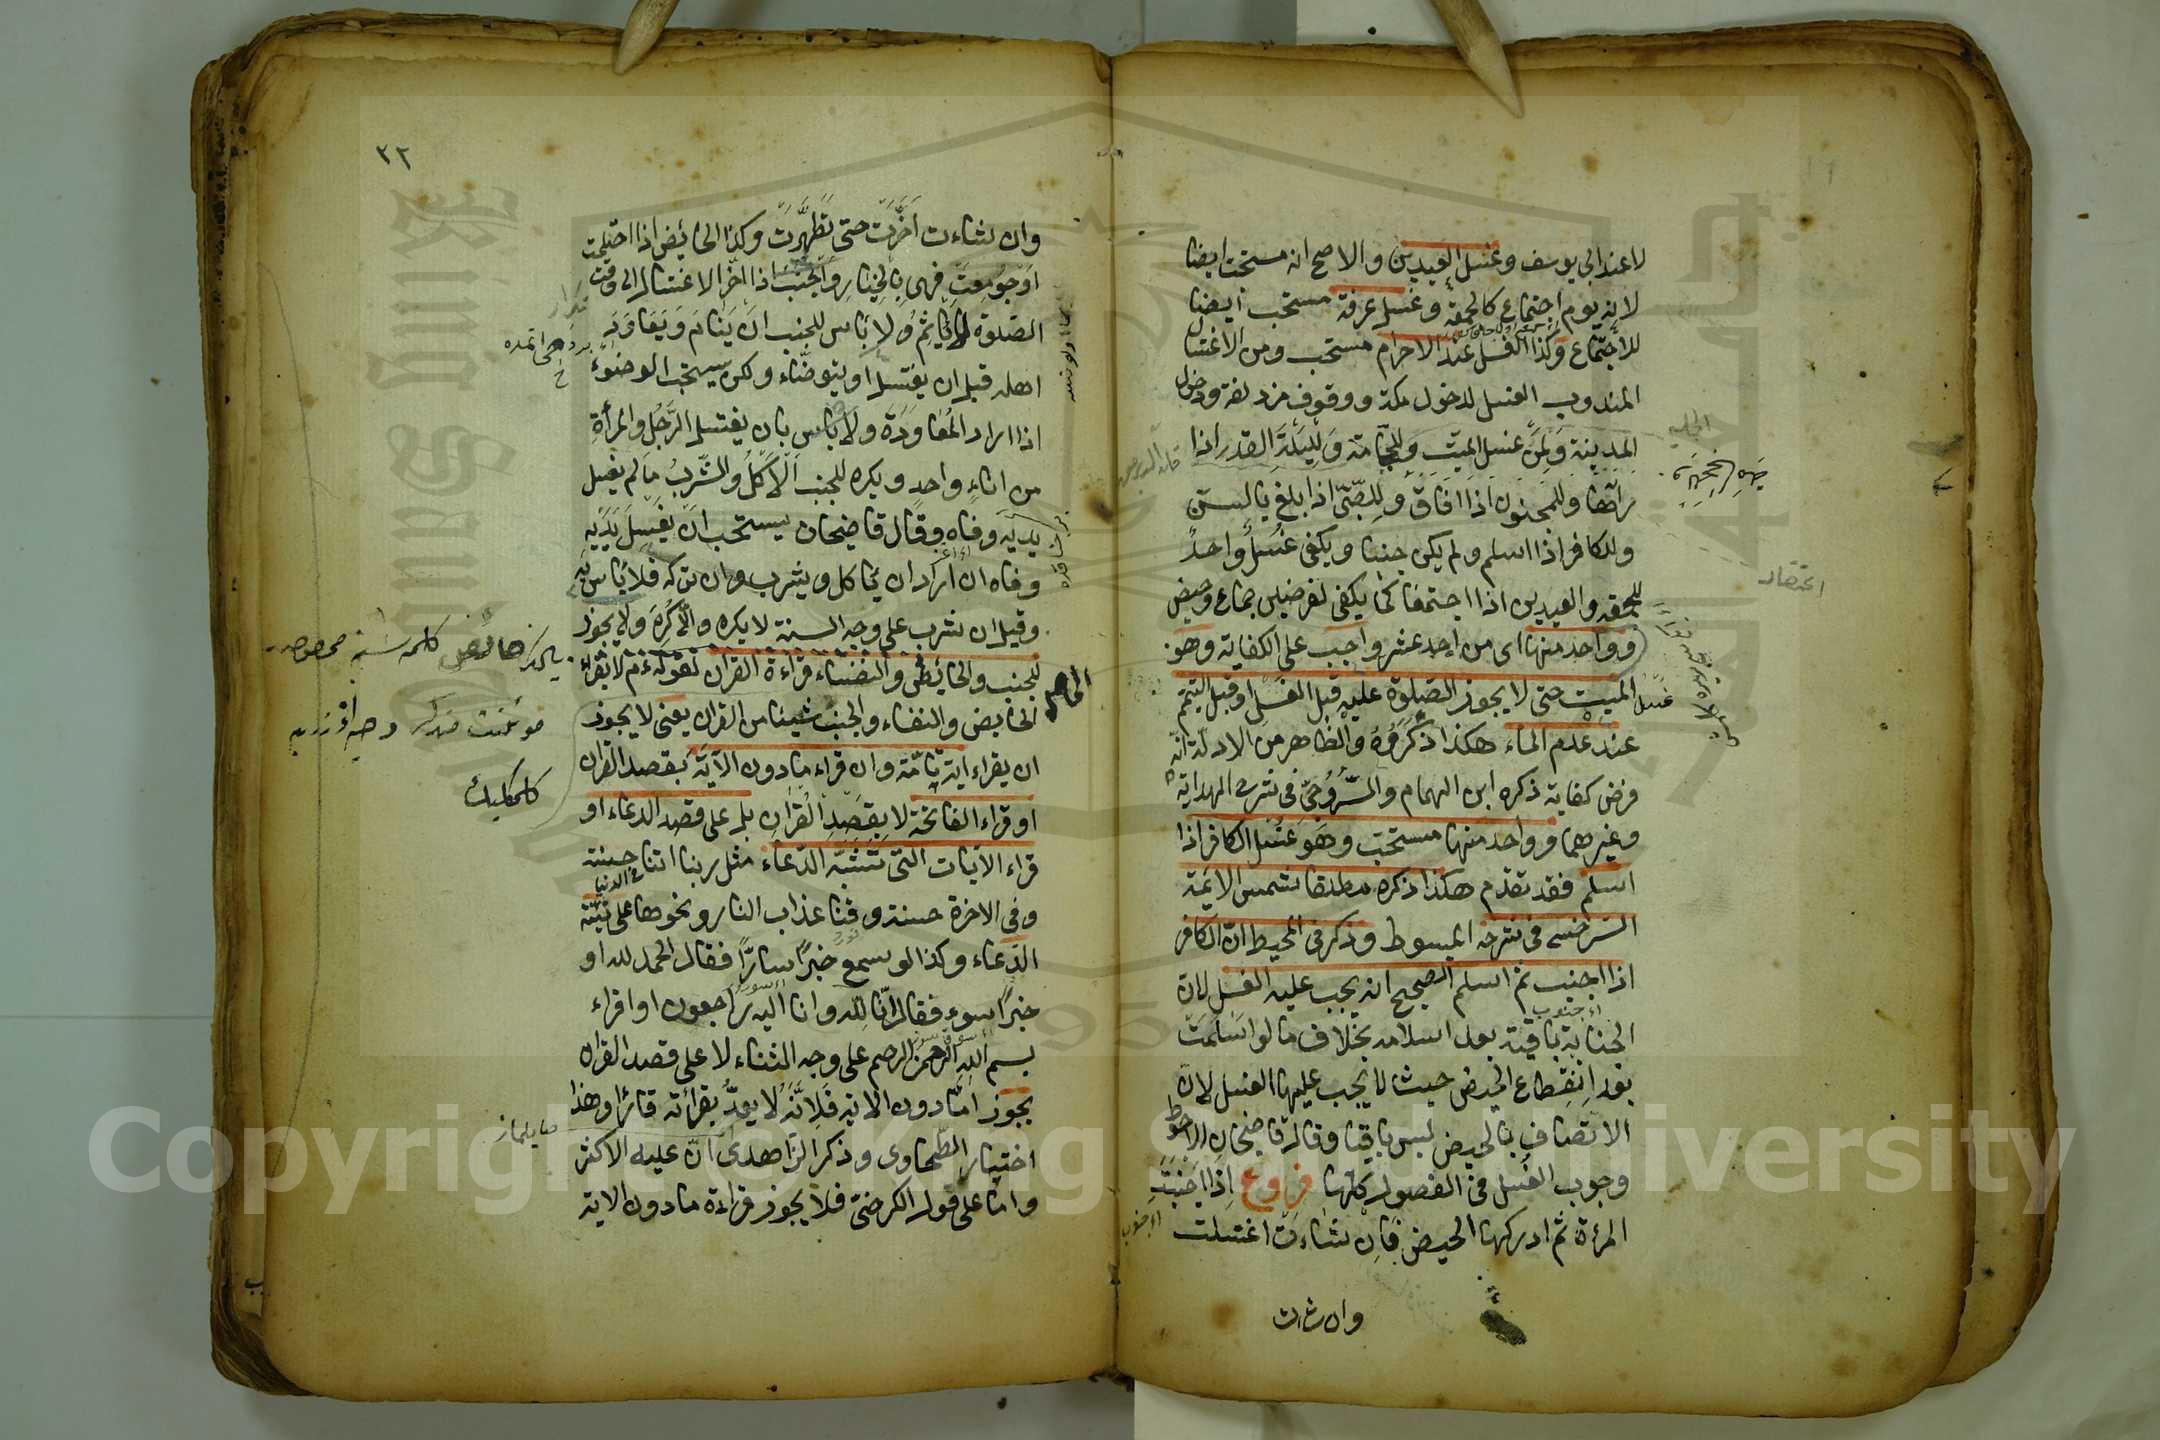 لا عند ابي يوسف وغسل العيدين والاصح انه مستحب ايضا
لانه يوم اجتماع كالجمعة وغسل عرفة مستحب ايضا
للاجتماع وكذا الغسل عند الاحرام مستحب ومن الاغتسال
المندوب الغسل لدخول مكة ووقوف مزدلفة ودخول
المدينة ولمن غسل الميت وللحجامة ولليلة القدر اذا
رآها وللمجنون اذا افاق وللصبي اذا بلغ بالسن
وللكافر اذا اسلم ولم يكن جنبا ويكفي غسل واحد
للجمعة والعيدين اذا اجتمعا كما يكفي لفرضين جماع وحيض
وواحد منها اي من احد عشر واجب على الكفاية وهو
غسل الميت حتى لا يجوز الصلوة عليه قبل الغسل او قبل التيمم
عند عدم الماء هكذا ذكروه والظاهر من الادلة انه
فرض كفاية ذكره ابن الهمام والسروجي في شرح الهداية
وغيرهما وواحد منها مستحب وهو غسل الكافر اذا
اسلم فقد تقدم هكذا ذكره مطلقا شمس الائمة
السرخسي في شرحه المبسوط وذكر في المحيط ان الكافر
اذا اجنب ثم اسلم الصحيح انه يجب عليه الغسل لان
الجنابة باقية بعد اسلامه بخلاف ما لو اسلمت
بعد انقطاع الحيض حيث لا يجب عليها الغسل لان
الاتصاف بالحيض ليس باقيا وقال قاضيخان الاحوط
وجوب الغسل في الفصول كلها فروع اذا اجنبت
المرءة ثم ادركها الحيض فان شاءت اغتسلت
وان شات
٣٢
وان شاءت اخرت حتى تطهرت وكذا الحائض اذا احتلمت
او جومعت فهي بالخيار والجنب اذا اخر الاغتسال الى وقت
الصلوة لا ياثم ولا باس للجنب ان ينام ويعاود
اهله قبل ان يغتسل او يتوضاء ولكن يستحب الوضوء
اذا اراد المعاودة ولا باس بان يغتسل الرجل والمرأة
من اناء واحد ويكره للجنب الاكل والشرب ما لم يغسل
يديه وفاه وقال قاضيخان يستحب ان يغسل يديه
وفاه ان اراد ان ياكل ويشرب وان تركه فلا باس به
وقيل ان شرب على وجه السنة لا يكره والا كره ولا يجوز
للجنب والحائض والنفساء قراءة القران لقوله عم لا يقراء
الحايض والنفساء والجنب شيئا من القران يعني لا يجوز
ان يقراء اية تامة وان قراء ما دون الآية بقصد القران
او قراء الفاتحة لا بقصد القران بل على قصد الدعاء او
قراء الآيات التي تشبه الدعاء مثل ربنا اتنا في الدنيا حسنة
وفي الاخرة حسنة وقنا عذاب النار ونحوها على نية
الدعاء وكذا لو سمع خبرا سارا فقال الحمد لله او
خبرا سوء فقال انا لله وانا اليه راجعون او قراء
بسم الله الرحمن الرحيم على وجه الثناء لا على قصد القران
يجوز اما دون الاية فلانه لا يعد بقرائته قارئا وهذا
اختيار الطحاوي وذكر الزاهدي ان عليه الاكثر
واما على قول الكرخي فلا يجوز قراءة ما دون الاية
Copyright © King Saud University